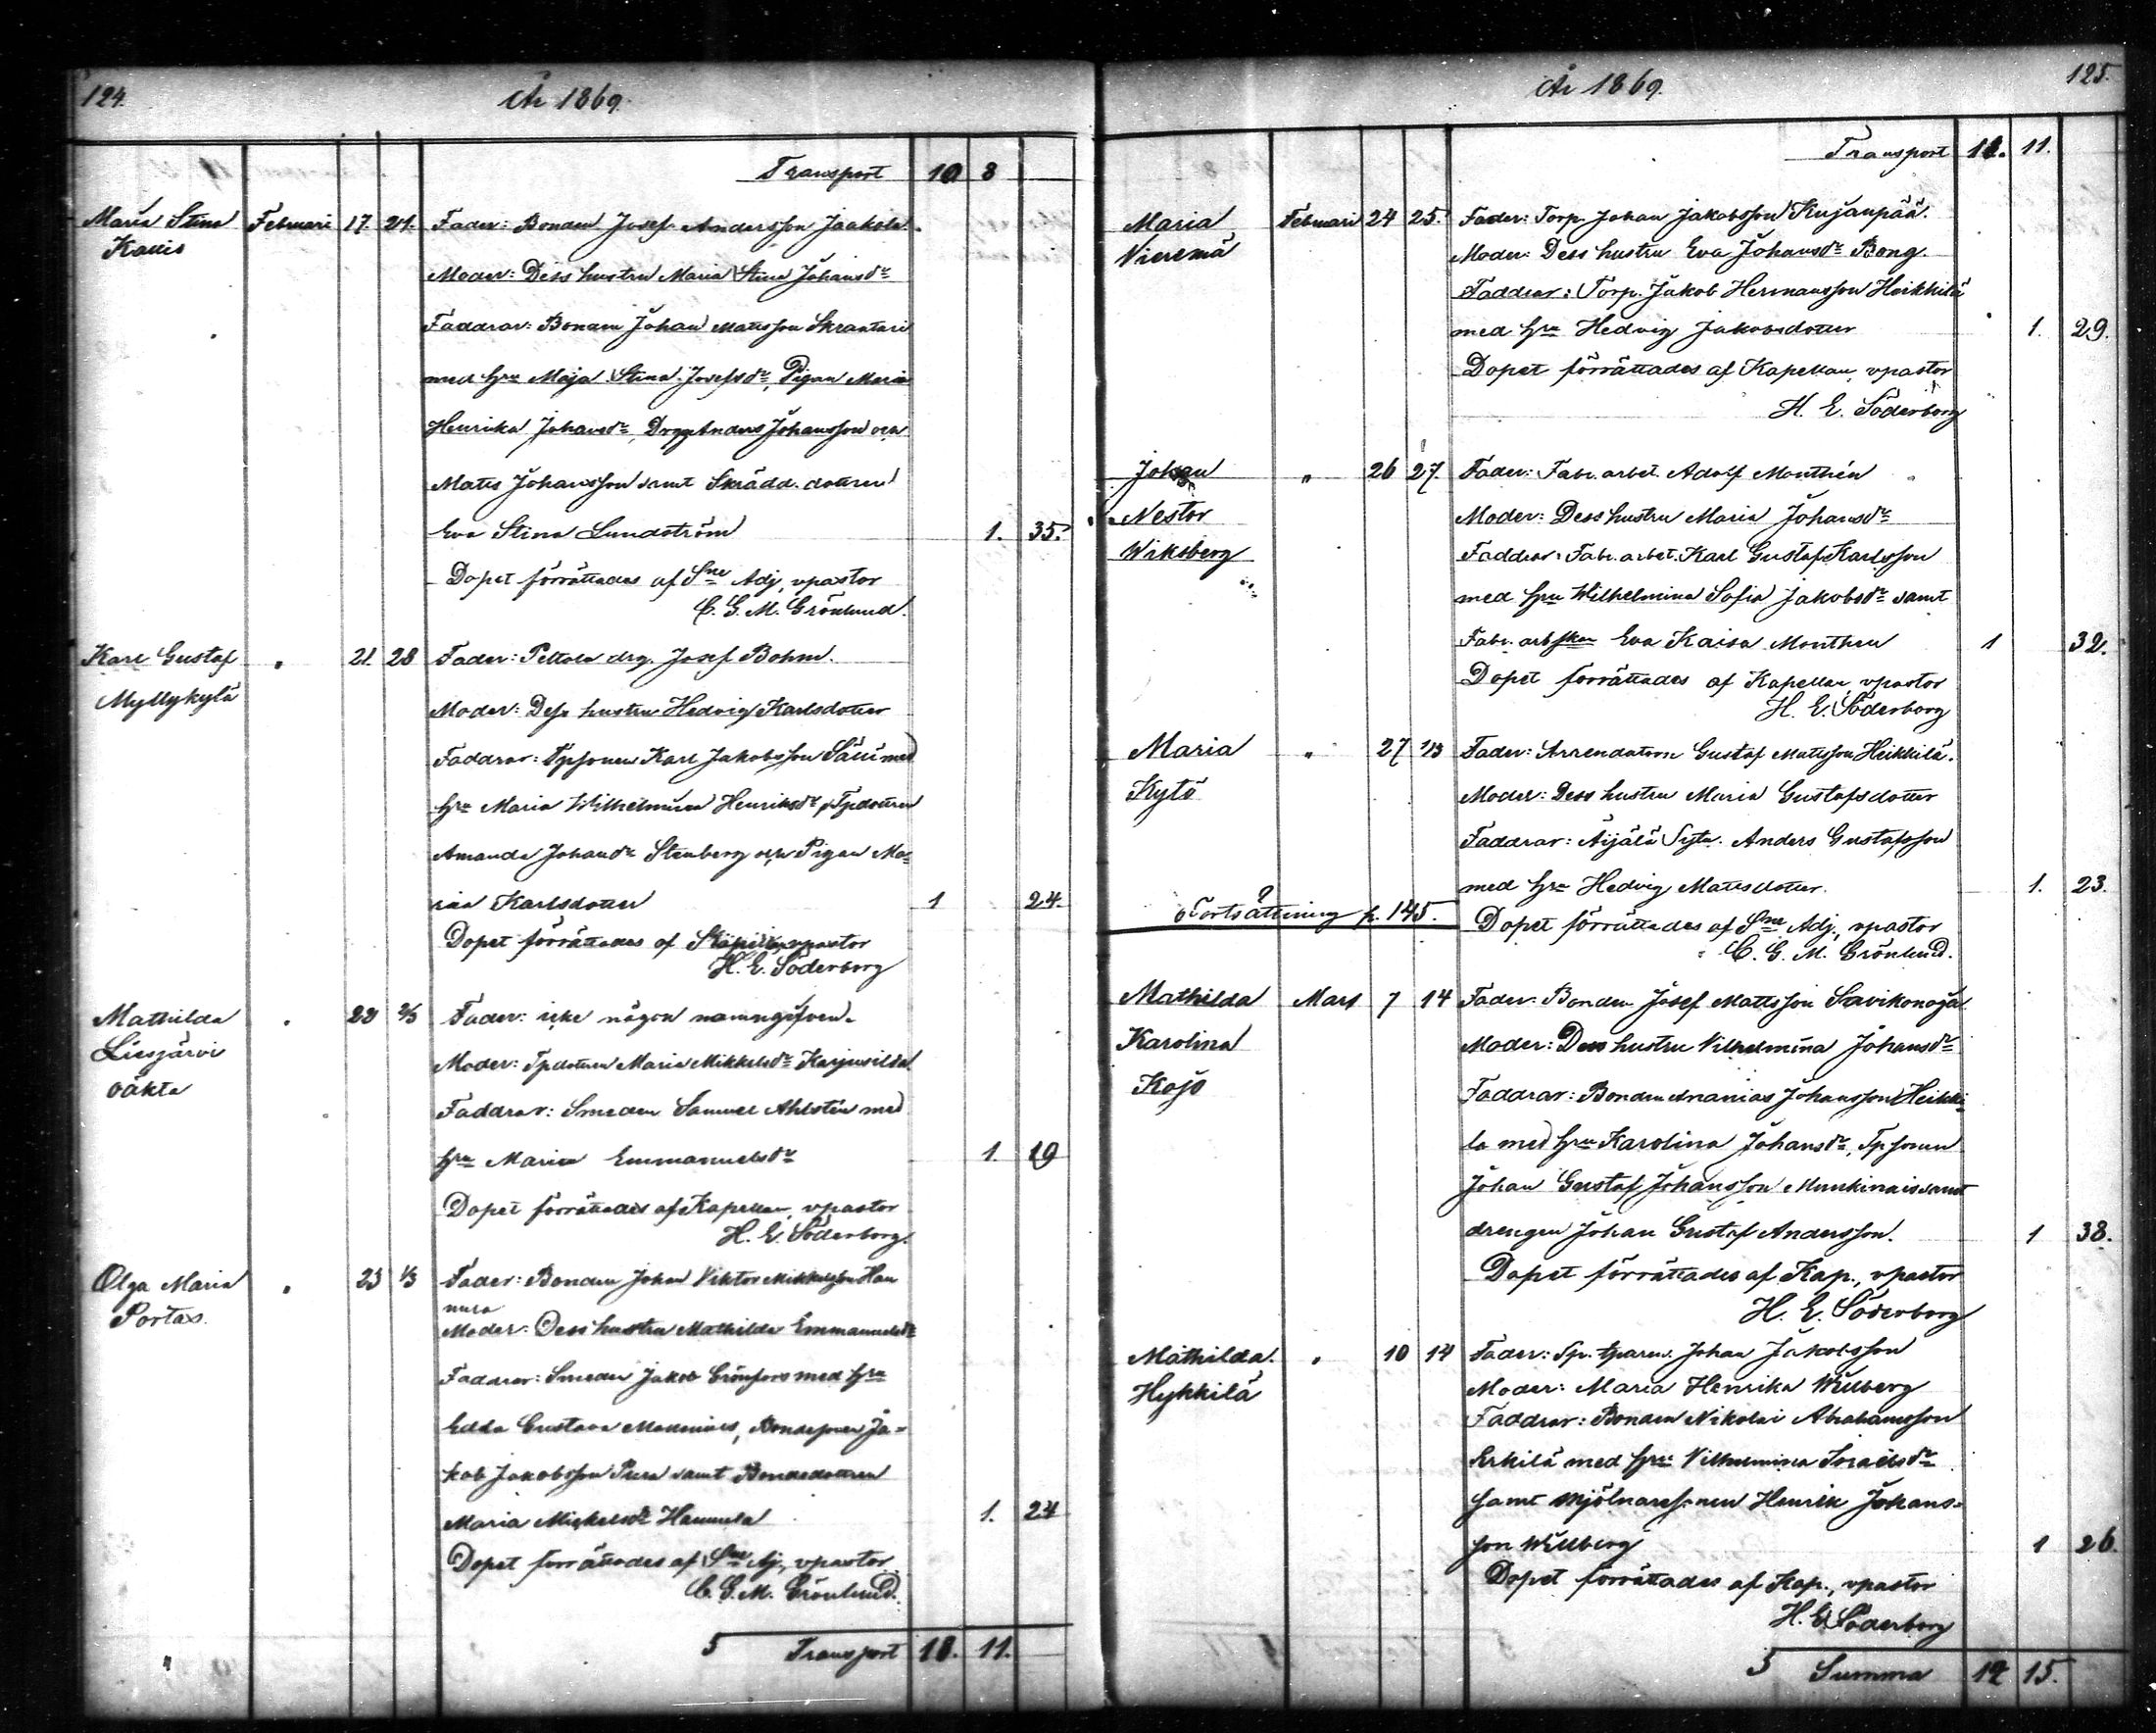 124.
År 1869.
Transport 10 8
Maria Stina Februari 17. 21. Fader: Bonden Josef Andersson Jaakola
Kallis
Moder: Dess hustru Maria Stina Johansdr
Faddrar: Bonden Johan Mattsson Skrantari
med hru Maja Stina Josefsdr, Pigan Maria
Henrika Johansdr, Drgg Anders Johansson och
Matts Johansson samt Skrädd. dottren
Eva Stina Lundström 1. 35.
Dopet förrättades af Sne Adj, vpastor
C. G. M. Grönlund.
Karl Gustaf " 21 28 Fader: Peltola drg. Josef Bohm.
Myllykylä
Moder: Dess hustru Hedvig Karlsdotter
Faddrar: Tpsonen Karl Jakobsson Sälli med
hru Maria Wilhelmina Henriksdr, Tpdottren
Amanda Johansdr Stenberg och Pigan Ma-
ria Karlsdotter 1 24.
Dopet förrättades af Kapellan, vpastor
H. E. Söderborg
Mathilda " 23 2/3 Fader: icke någon namngifven.
Liesjärvi
Moder: Tpdottren Maria Mikkelsdr
oäkta
Faddrar: Smeden Samuel Ahlstén med
hru Maria Emmanuelsdr 1. 19
Dopet förrättades af Kapellan, vpastor
H. E. Söderborg.
Olga Maria " 23 1/3 Fader: Bonden Johan Viktor Mikkelsson Han
Portas.
nula
Moder: Dess hustru Mathilda Emmanuelsdr
Faddrar: Smeden Jakob Grönfors med hru
Edda Gustava, Bondesonen Ja-
kob Jakobsson Pura samt Bondedottren
Maria Mickelsdr Hannula 1. 24
Dopet förrättades af Sne Aj, vpastor
C. G. M. Grönlund.
5 Transport 11.
125.
År 1869.
Transport 11.
Maria Februari 24 25. Fader: Torp. Johan Jakobsson Kujanpää.
Vieremä
Moder: Dess hustru Eva Johansdr Bong.
Faddrar: Torp. Jakob Hermansson Heikkilä
med hru Hedvig Jakobsdotter 1. 29.
Dopet förrättades af Kapellan, vpastor
H. E. Söderborg
Johan " 26 27. Fader: Fabr. arbet. Adolf Monthén
Nestor
Moder: Dess hustru Maria Johansdr
Wiksberg
Faddrar: Fabr. arbet. Karl Gustaf Karlsson
med hru Wilhelmina Sofia Jakobsdr samt
Fabr. arbskan Eva Kaisa Monthen 1 32.
Dopet förrättades af Kapellan, vpastor
H. E. Söderborg
Maria " 27 1/3 Fader: Arrendatorn Gustaf Mattsson Heikkilä.
Kytö
Moder: Dess hustru Maria Gustafsdotter
Faddrar: Äijälä Syta. Anders Gustafsson
med hru Hedvig Mattsdotter. 1. 23.
Fortsättning p. 145.
Dopet förrättades af Sne Adj., vpastor
C. G. M. Grönlund.
Mathilda Mars 7 14 Fader: Bonden Josef Mattsson Savikonoja
Karolina
Moder: Dess hustru Vilhelmina Johansdr
Kojo
Faddrar: Bonden Ananias Johansson Heikki-
la med hru Karolina Johansdr, Tpsonen
Johan Gustaf Johansson Munkinais samt
drengen Johan Gustaf Andersson. 1 38.
Dopet förrättades af Kap., vpastor
H. E. Söderborg
Mathilda " 10 14 Fader: Sp. tparen. Johan Jakobsson
Hykkilä
Moder: Maria Henrika Willberg
Faddrar: Bonden Nikolai Abrahamsson
Erkilä med hru Vilhelmina Israelsdr
samt Mjölnaresonen Henrik Johans-
son Willberg 1 26.
Dopet förrättades af Kap., vpastor
H. E. Söderborg
5 Summa 12 15.